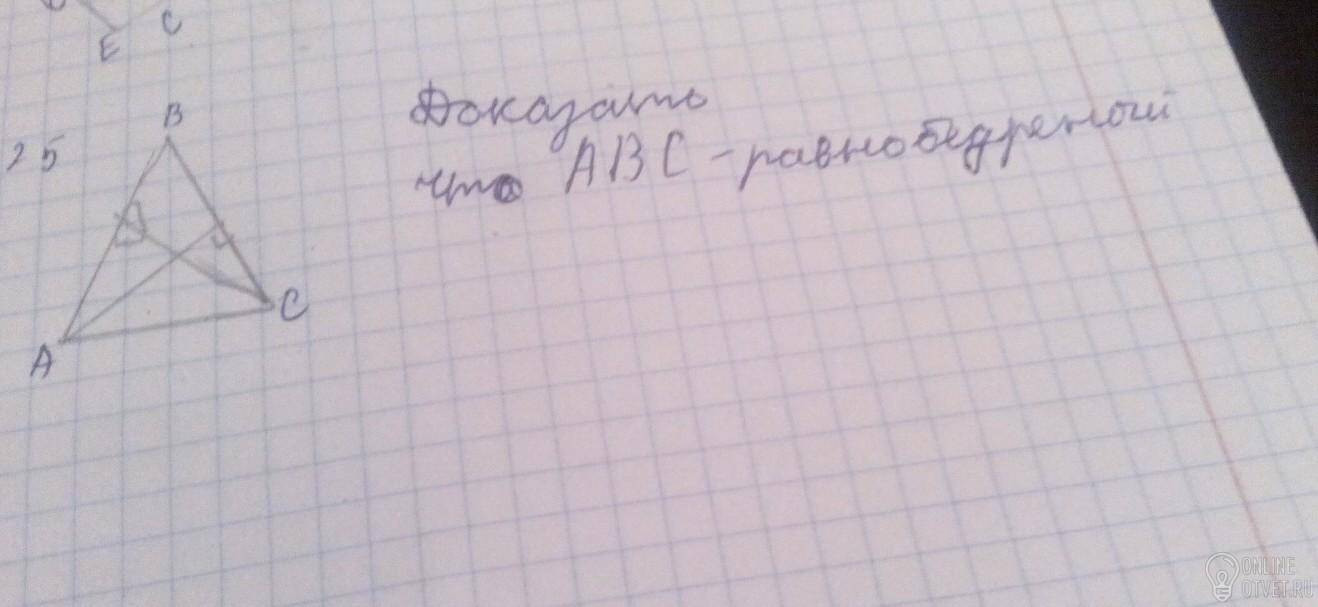 E C
B
25
Доказать
что ABC - равнобедреный
A C
ONLINE
OTVET.RU